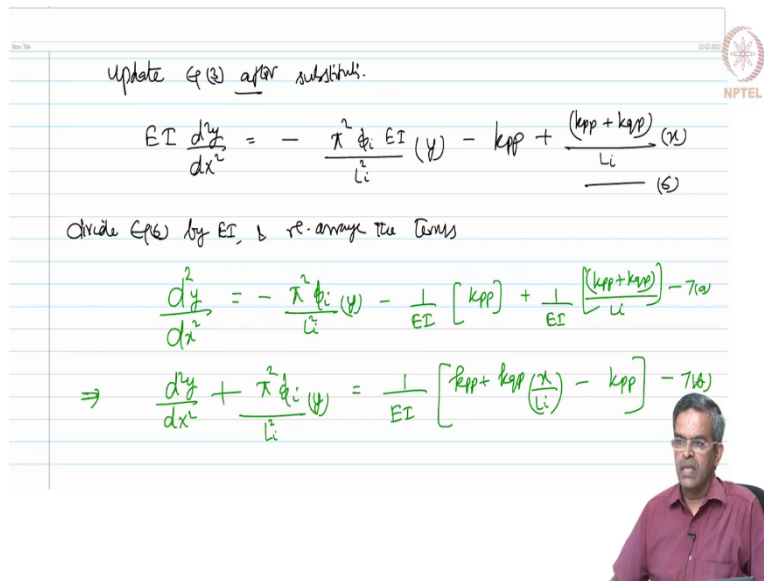 Note Title
02-02-2022
NPTEL
Update Eq (3) after substituti.
EI d²y/dx² = - π² ϕi EI / Li² (y) - kpp + (kpp + kqp) / Li (x)
—— (6)
divide Eq(6) by EI, & re-arrange the terms
d²y/dx² = - π² ϕi / Li² (y) - 1/EI [kpp] + 1/EI [(kpp + kqp) / Li] - 7(a)
⇒ d²y/dx² + π² ϕi / Li² (y) = 1/EI [kpp + kqp (x/Li) - kpp] - 7(b)